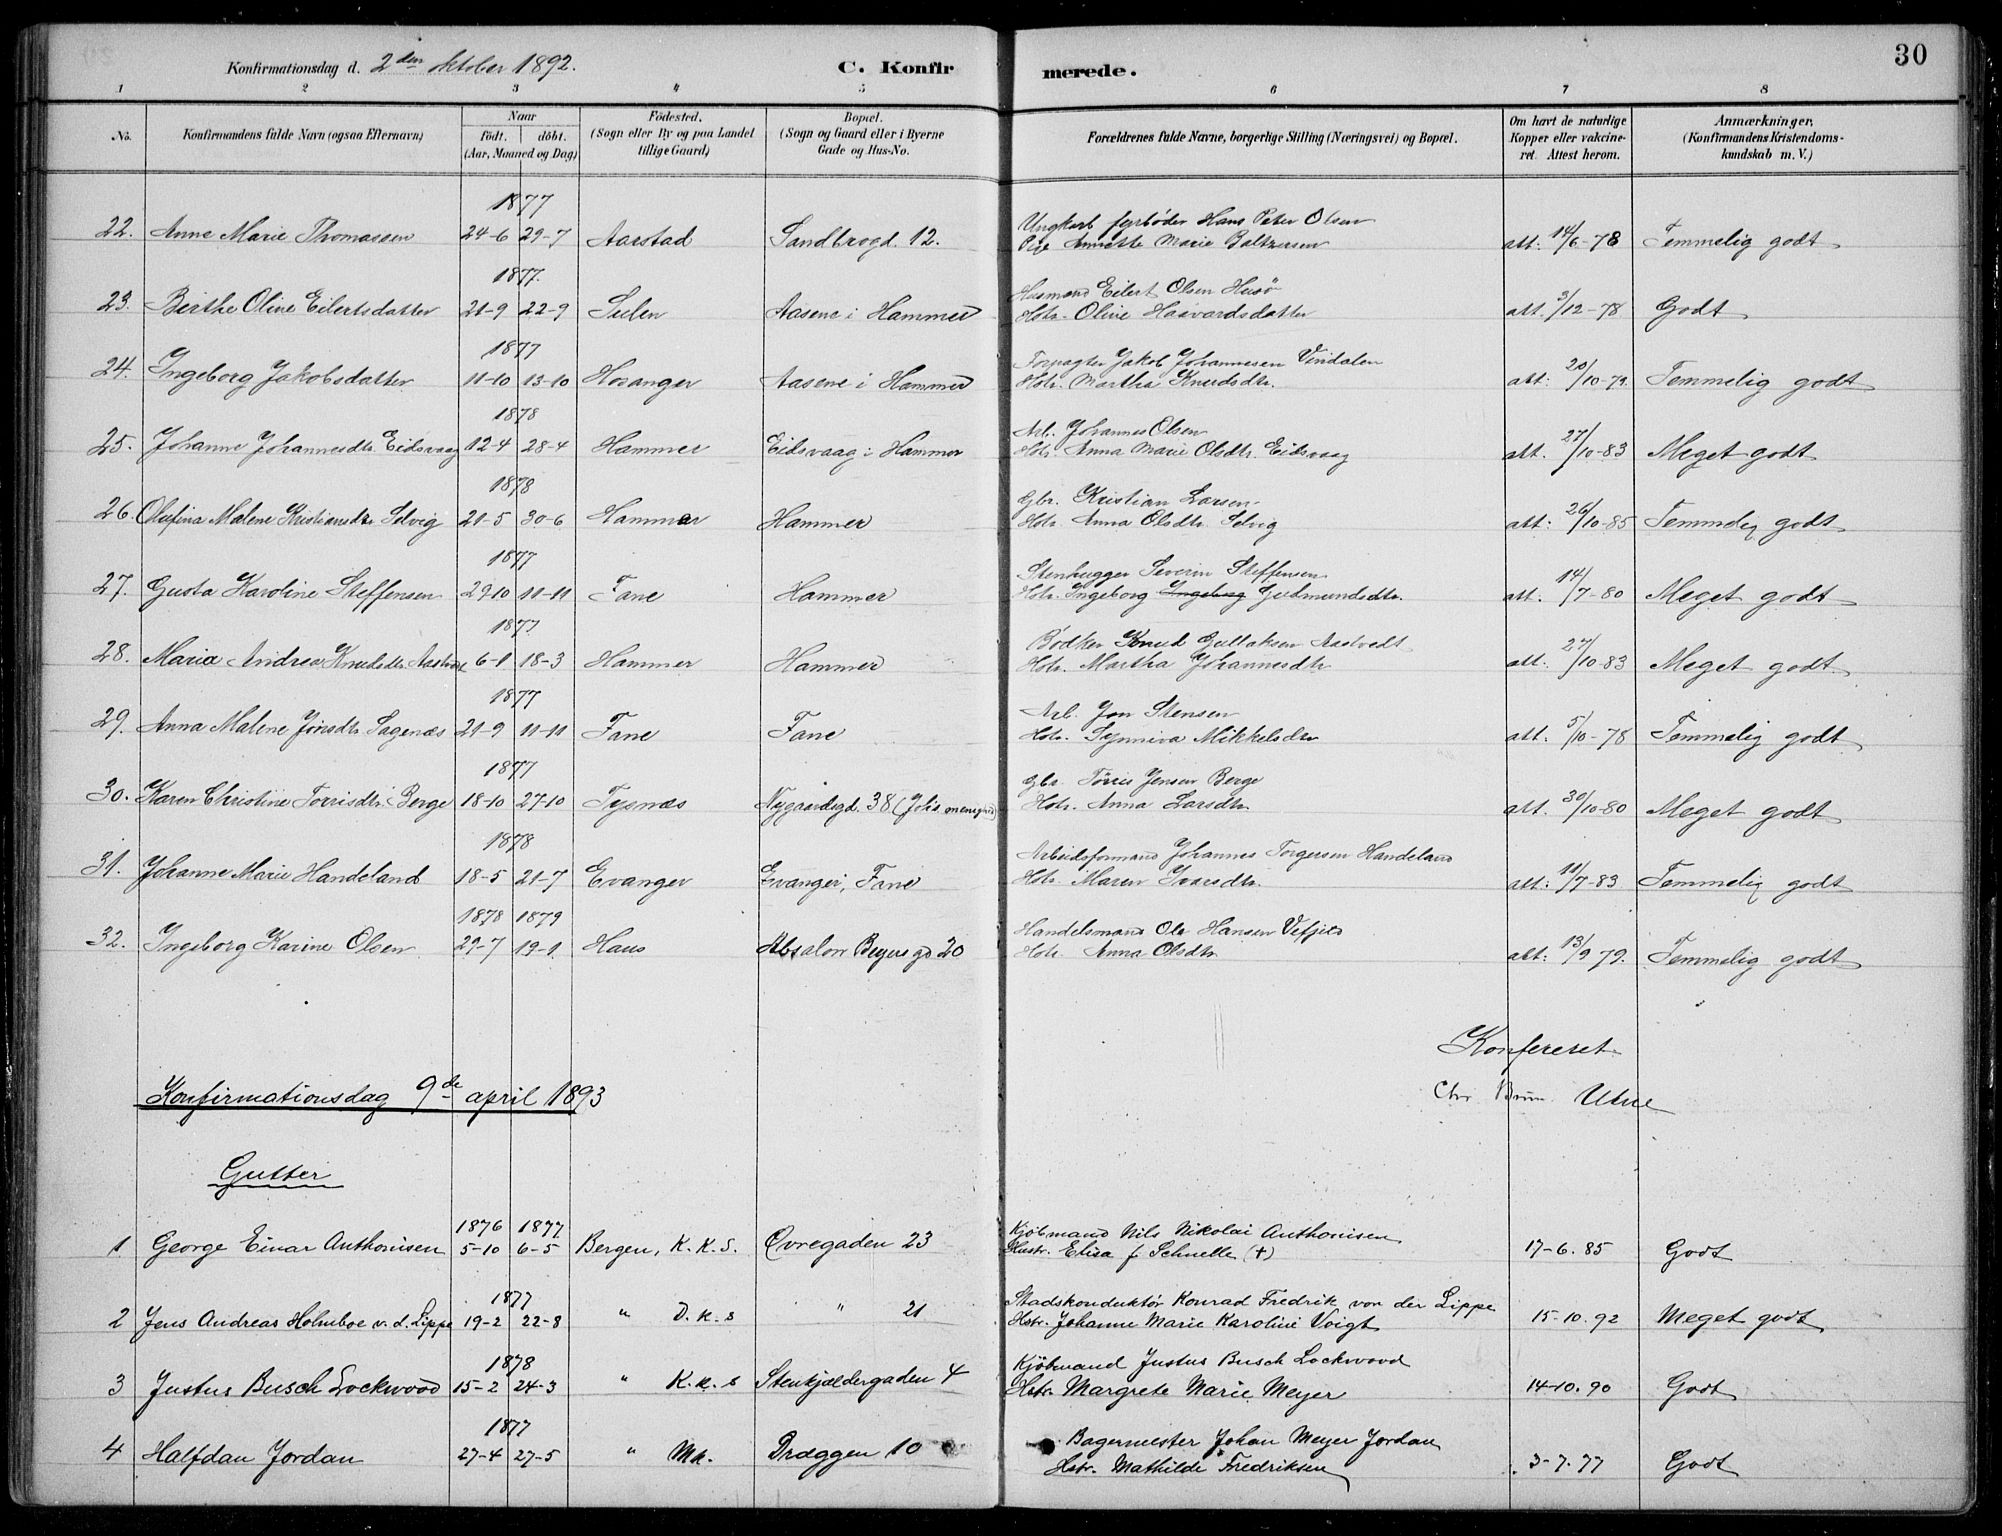 30
Konfirmationsdag d. 2den oktober 1892.
C. Konfirmerede.
1 2 3 4 5 6 7 8
No. Konfirmandens fulde Navn (ogsaa Efternavn) Naar födt. döbt. (Aar, Maaned og Dag) Födested. (Sogn eller By og paa Landet tillige Gaard) Bopæl. (Sogn og Gaard eller i Byerne Gade og Hus-No. Forældrenes fulde Navne, borgerlige Stilling (Næringsvei) og Bopæl. Om havt de naturlige Kopper eller vakcineret. Attest herom. Anmærkninger, (Konfirmandens Kristendomskundskab m. V.)
1877
22. Anne Marie Thomassen 24-6 29-7 Aarstad Sandbrogd. 12. Ungkarl fyrbøder Hans Peter Olsen
Pige Annette Marie Baltzersen att. 14/6-78 Temmelig godt
1877.
23. Birthe Oline Eilertsdatter 21-9 22-9 Sulen Aasene i Hammer Husmand Eilert Olsen Husö
Hstr. Oline Haavardsdatter att. 3/12-78 Godt
1877
24. Ingeborg Jakobsdatter 11-10 13-10 Hosanger Aasene i Hammer Forpagter Jakob Johannesen Vindalen
Hstr. Martha Knudsdtr. att: 20/10-79. Temmelig godt
1878
25. Johanne Johannesdtr Eidsvaag 12-4 28-4 Hammer Eidsvaag i Hammer Arb. Johannes Olsen
Hstr. Anna Marie Olsdtr. Eidsvaag att. 27/10-83 Meget godt
1878
26. Olufina Malene Kristiansdtr Selvig 21-5 30-6 Hammer Hammer Gbr. Kristian Larsen
Hstr. Anna Olsdtr. Selvig att: 26/10-85 Temmelig godt
1877
27. Gusta Karoline Steffensen 29-10 11-11 Fane Hammer Stenhugger Severin Steffensen
Hstr. Ingeborg Ingeborg Gudmundsdtr. att. 14/7-80 Meget godt
1877
28. Maria Andrea Knudsdtr. 6-1 18-3 Hammer Hammer Bødker Knud Gullaksen Aastvedt
Hstr. Martha Johannesdtr att. 27/10-83 Meget godt
1877
29. Anna Malene Jónsdtr Sagenæs 21-9 11-11 Fane Fane Arb. Jon Stensen
Hstr. Synneva Mikkelsdtr att. 5/10-78 Temmelig godt
1877
30. Karen Christine Torrisdtr. Berge 18-10 27-10 Tysnæs Nygaardsgd. 38 Gbr. Tørris Jensen Berge
Hstr. Anna Larsdtr att. 30/10-80 Meget godt
1878
31. Johanne Marie Handeland 18-5 21-7 Evanger Evanger, Fane Arbeidsformand Johannes Torgersen Handeland
Hstr. Maren Ivarsdtr. att: 11/7-83 Temmelig godt
1878 1879
32. Ingeborg Karine Olsen 29-7 19-1 Haus Absalon Beyers gd 20 Handelsmand Ole Hansen
Hstr. Anna Olsdtr att: 13/9 79. Temmelig godt
Konfereret
Chr Brun Utne
Konfirmationsdag 9de april 1893
Gutter
1876 1877
1 George Einar Anthonisen 5-10 6-5 Bergen, K.K.S. Øvregaden 23 Kjöbmand Nils Nikolai Anthonisen
Hustr. Elisa f Schnelle (†) 17-6.85 Godt
1877
2 Jens Andreas Holmboe v.d. Lippe 19-2 22-8 " D.k.s " 21 Stadskonduktör Konrad Fredrik von der Lippe
Hstr. Johanne Marie Karoline Voigt 15-10.92 Meget godt
1878
3 Justus Busch Lockwood 15-2 24-3 " K.k.s Stenkjældergaden 4 Kjöbmand Justus Busch Lockwood
Hstr. Margrete Marie Meyer 14-10.90 Godt
1877
4 Halfdan Jordan 27-4 27-5 " Mk. Dræggen 10 Bagermester Johan Meyer Jordan
Hstr. Mathilde Fredriksen 3-7.77 Godt